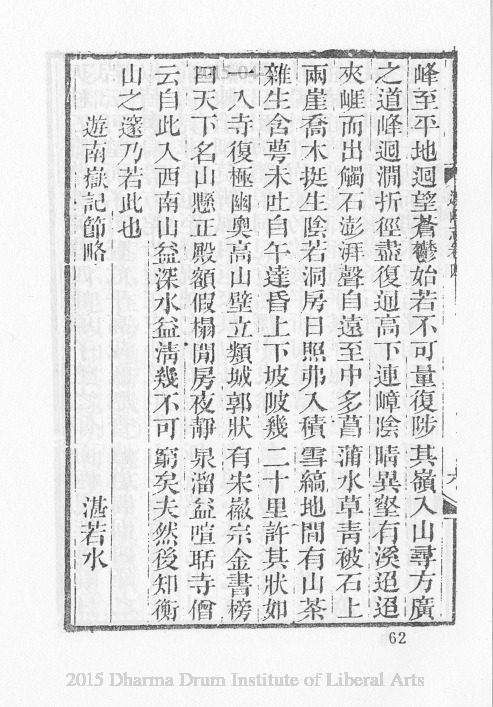 峰至平地迴望蒼鬱始若不可量復陟其嶺入山尋方廣
之道峰迴澗折徑盡復迥高下連嶂陰晴異壑有溪迢迢
夾崕而出觸石彭湃聲自遠至中多菖蒲水草靑被石上
兩崖喬木挺生陰若洞房日照弗入積雪縞地間有山茶
雜生含萼未吐自午達昏上下坡陂幾二十里許其狀如
一入寺復極幽奥高山壁立類城郭狀有宋徽宗金書榜
曰天下名山懸正殿額假榻閒房夜靜泉溜益喧聒寺僧
云自此入西南山益深水益淸幾不可窮矣夫然後知衡
山之邃乃若此也
遊南嶽記節略 湛若水
六
62
2015 Dharma Drum Institute of Liberal Arts